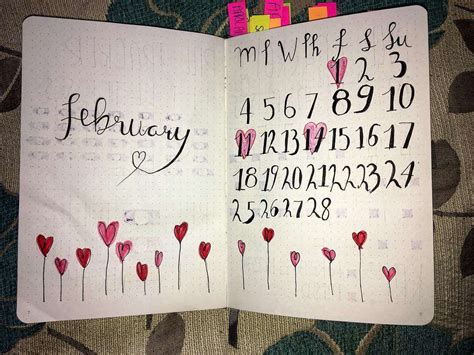 February
M T W Th f S Su
1 2 3
4 5 6 7 8 9 10
11 12 13 14 15 16 17
18 19 20 21 22 23 24
25 26 27 28